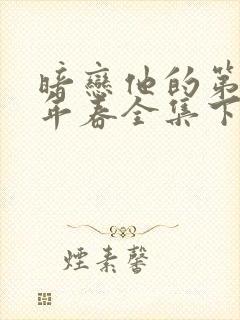 暗戀他的第
年春全集下
煙素馨